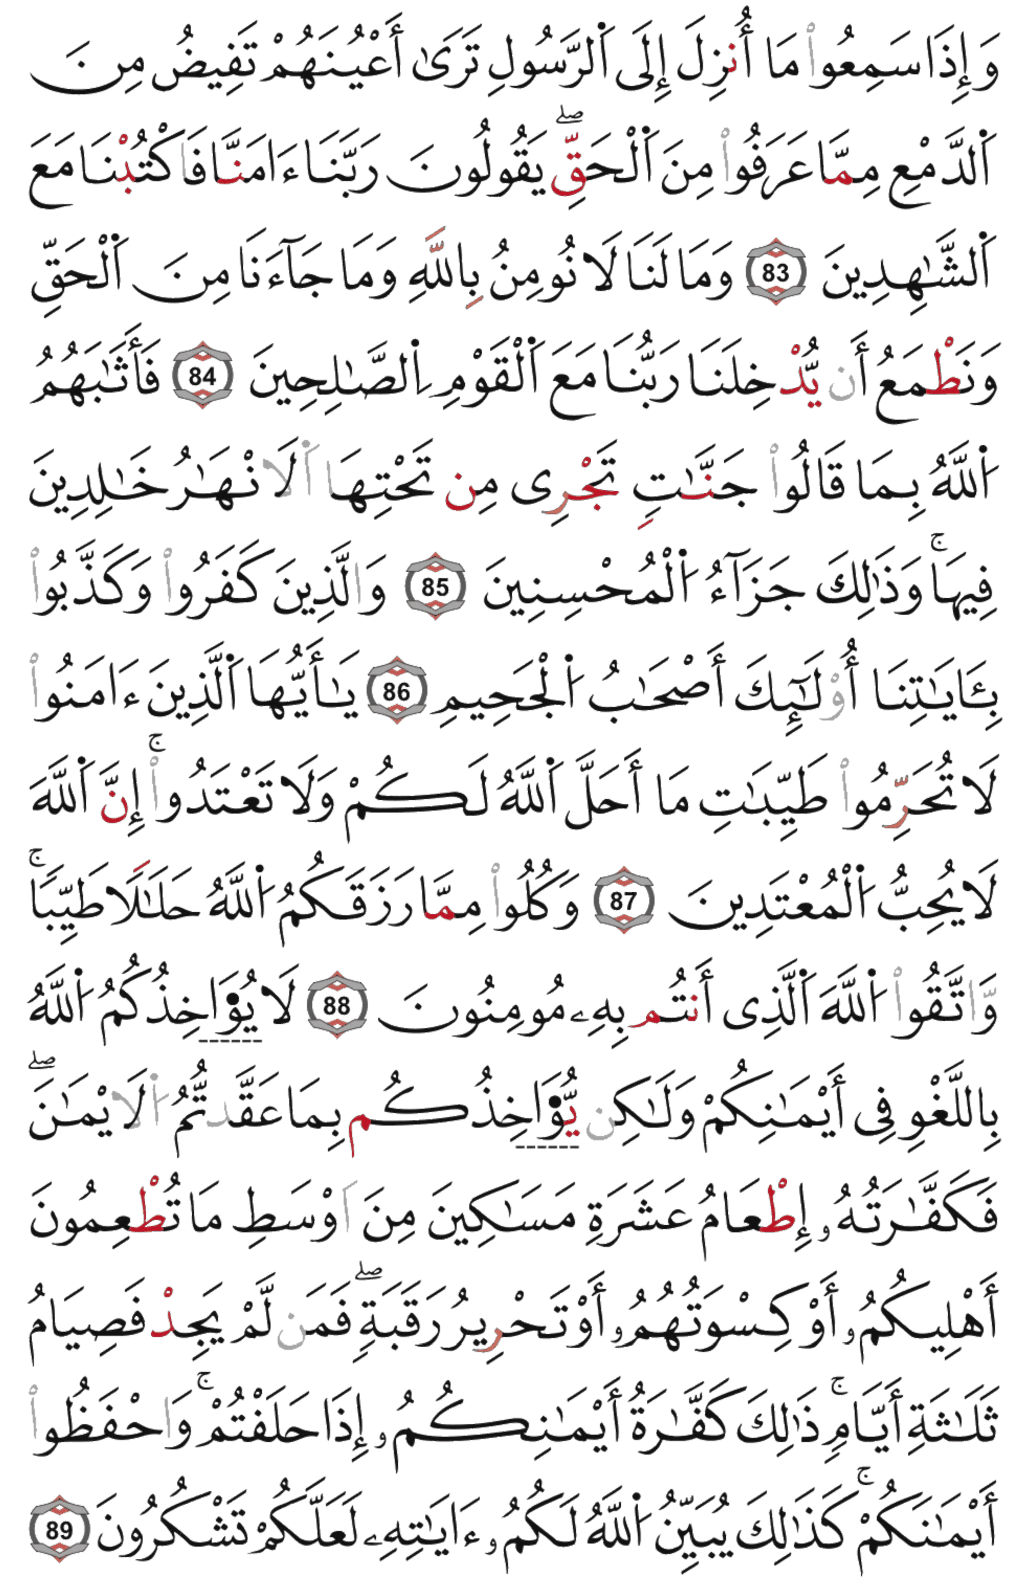 وَإِذَا سَمِعُواْ مَا أُنزِلَ إِلَى اَ۬لرَّسُولِ تَرَىٰ أَعْيُنَهُمْ تَفِيضُ مِنَ
اَ۬لدَّمْعِ مِمَّا عَرَفُواْ مِنَ اَ۬لْحَقِّۖ يَقُولُونَ رَبَّنَا ءَامَنَّا فَاكْتُبْنَا مَعَ
اَ۬لشَّٰهِدِينَ 83 وَمَا لَنَا لَا نُومِنُ بِاللَّهِ وَمَا جَآءَنَا مِنَ اَ۬لْحَقِّ
وَنَطْمَعُ أَن يُّدْخِلَنَا رَبُّنَا مَعَ اَ۬لْقَوْمِ اِ۬لصَّٰلِحِينَ 84 فَأَثَٰبَهُمُ
اُ۬للَّهُ بِمَا قَالُواْ جَنَّٰتٍ تَجْرِى مِن تَحْتِهَا اَ۬لَانْهَٰرُ خَٰلِدِينَ
فِيهَاۚ وَذَٰلِكَ جَزَآءُ اُ۬لْمُحْسِنِينَ 85 وَالَّذِينَ كَفَرُواْ وَكَذَّبُواْ
بِـَٔايَٰتِنَا أُوْلَٰٓئِكَ أَصْحَٰبُ اُ۬لْجَحِيمِ 86 يَٰأَيُّهَا اَ۬لَّذِينَ ءَامَنُواْ
لَا تُحَرِّمُواْ طَيِّبَٰتِ مَا أَحَلَّ اَ۬للَّهُ لَكُمْ وَلَا تَعْتَدُواْۚ إِنَّ اَ۬للَّهَ
لَا يُحِبُّ اُ۬لْمُعْتَدِينَ 87 وَكُلُواْ مِمَّا رَزَقَكُمُ اُ۬للَّهُ حَلَٰلًا طَيِّبًاۚ
وَّاتَّقُواْ اُ۬للَّهَ اَ۬لَّذِى أَنتُم بِهِۦ مُومِنُونَ 88 لَا يُوَ۬اخِذُكُمُ اُ۬للَّهُ
بِاللَّغْوِ فِى أَيْمَٰنِكُمْ وَلَٰكِن يُّوَ۬اخِذُكُم بِمَا عَقَّدتُّمُ اُ۬لَايْمَٰنَۖ
فَكَفَّٰرَتُهُۥ إِطْعَامُ عَشَرَةِ مَسَٰكِينَ مِنَ اَوْسَطِ مَا تُطْعِمُونَ
أَهْلِيكُمُۥ أَوْ كِسْوَتُهُمُۥ أَوْ تَحْرِيرُ رَقَبَةٍۖ فَمَن لَّمْ يَجِدْ فَصِيَامُ
ثَلَٰثَةِ أَيَّامٍۚ ذَٰلِكَ كَفَّٰرَةُ أَيْمَٰنِكُمُۥ إِذَا حَلَفْتُمْۚ وَاحْفَظُواْ
أَيْمَٰنَكُمْۚ كَذَٰلِكَ يُبَيِّنُ اُ۬للَّهُ لَكُمُۥ ءَايَٰتِهِۦ لَعَلَّكُمْ تَشْكُرُونَ 89